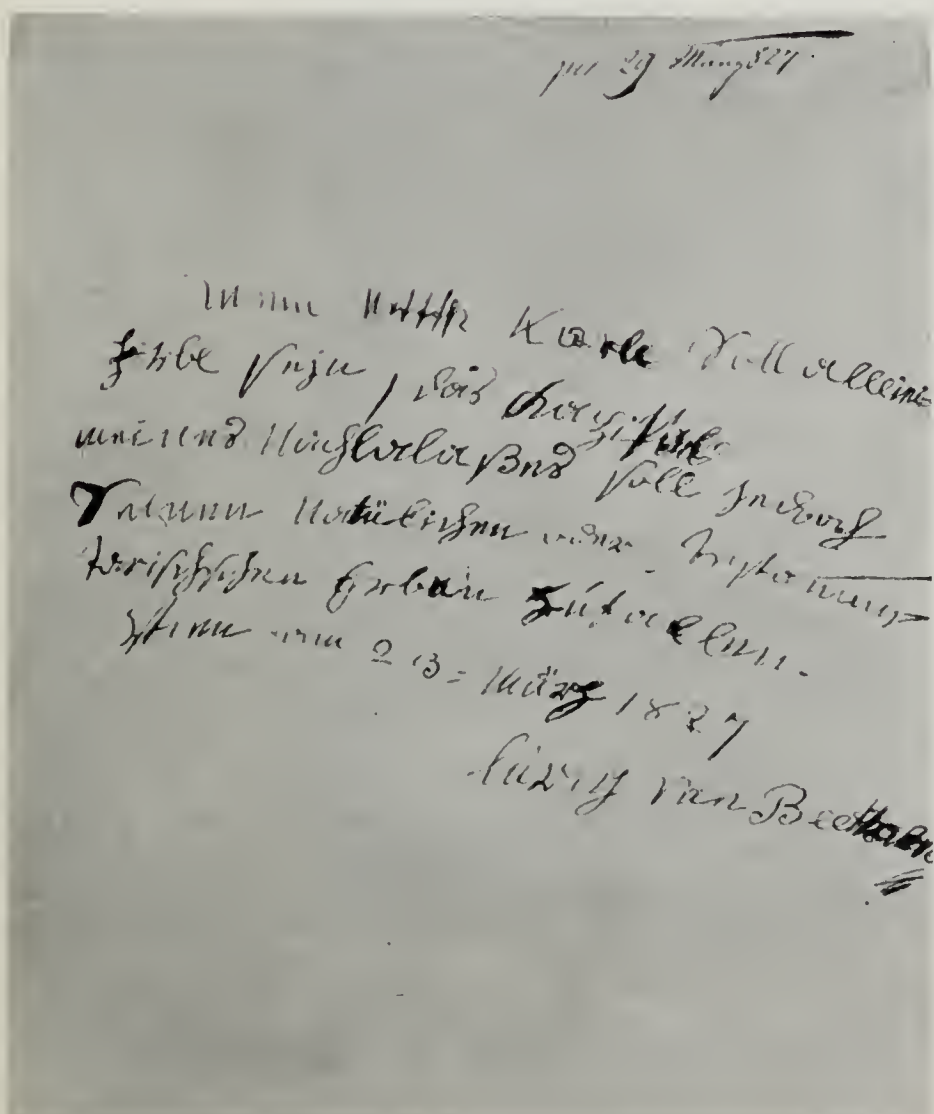 29 März 827.
Mein Neffe Karl Soll allein=
Erbe seyn, das Kapital
meines Nachlalaßes soll jedoch
Seinen Natülichen oder Testamen=
tarischschen Erben zufallen.
Wien am 23= März 1827
luwig van Beethoven